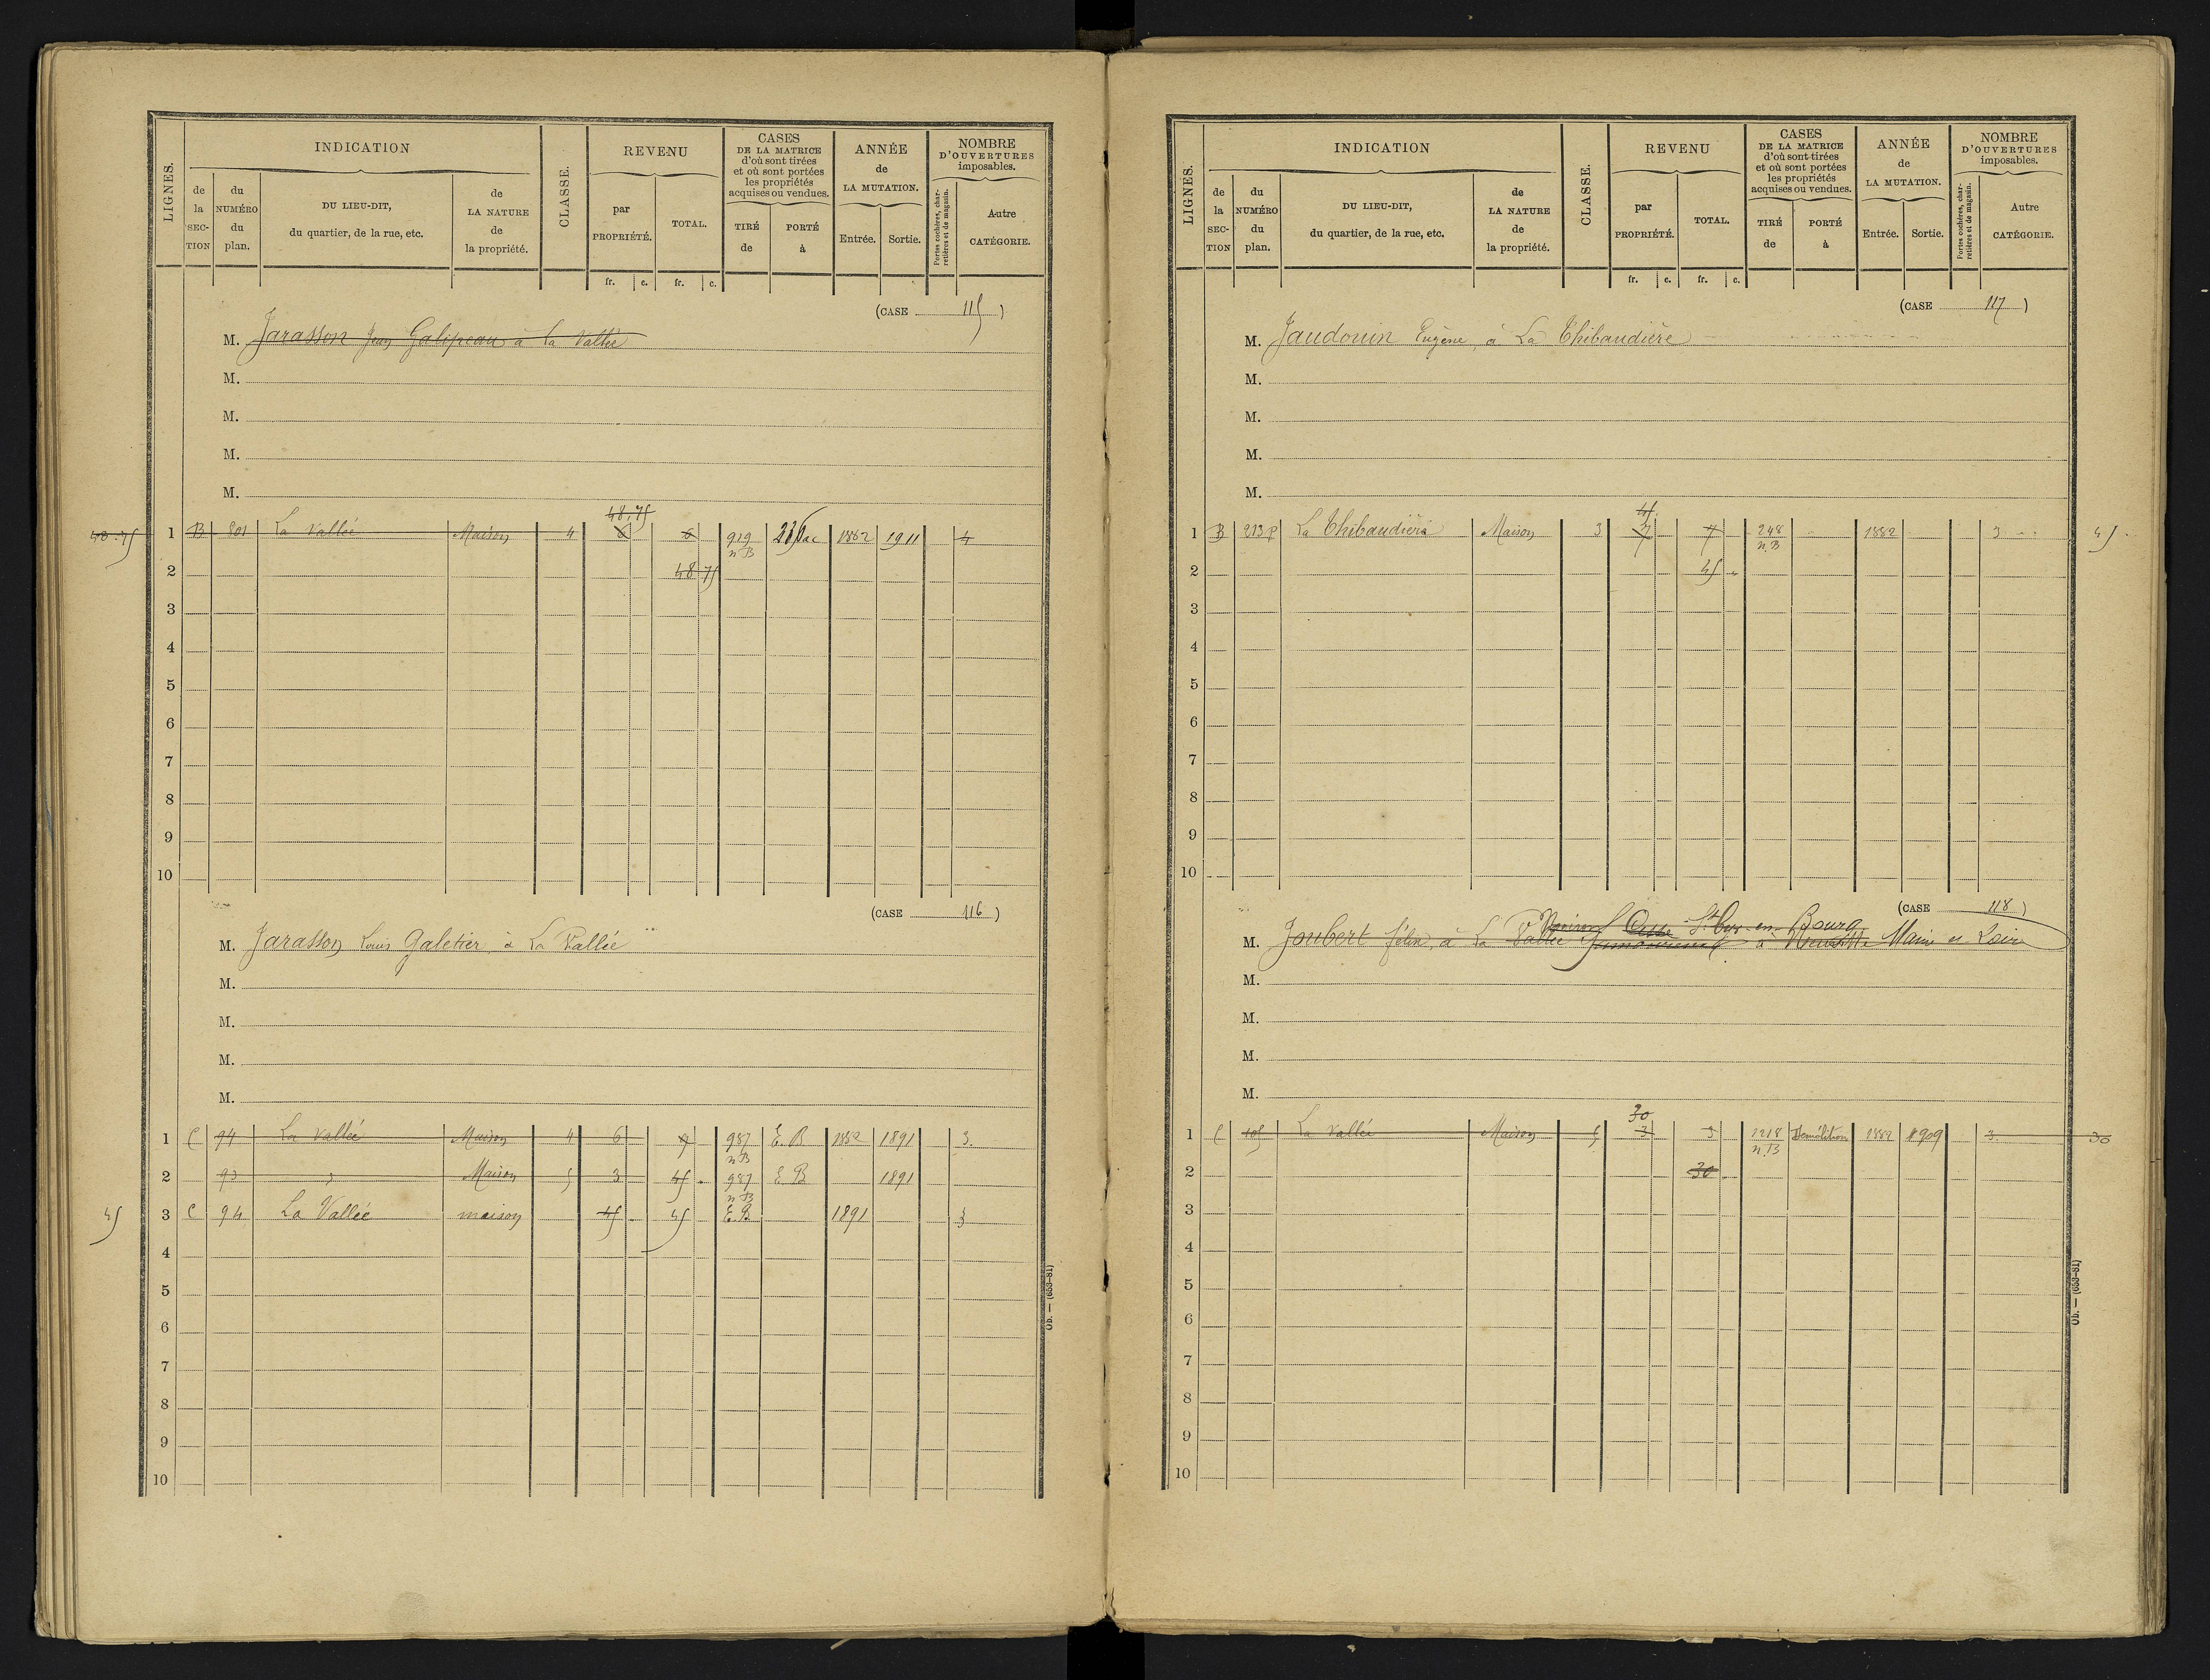 LIGNES.
INDICATION
de la SECTION
du NUMÉRO du plan.
DU LIEU-DIT, du quartier, de la rue, etc.
de LA NATURE de la propriété.
CLASSE.
REVENU
par PROPRIÉTÉ.
TOTAL.
fr. c. fr. c.
CASES DE LA MATRICE d'où sont tirées et où sont portées les propriétés acquises ou vendues.
TIRÉ de
PORTÉ à
ANNÉE de LA MUTATION.
Entrée. Sortie.
NOMBRE D'OUVERTURES imposables.
Portes cochères, charretières et de magasin.
Autre CATÉGORIE.
(CASE 115)
M. Jarasson Jean Galipeau à La Vallée
M.
M.
M.
M.
48.75
48.75 1 B 801 La Vallée Maison 4 6 6 919 n B 1882 1911 4
2 48 75
3
4
5
6
7
8
9
10
(CASE 116)
M. Jarasson Louis Galetier à La Vallée
M.
M.
M.
M.
1 C 94 La Vallée Maison 4 6 9 987 n B E. B 1882 1891 3.
2 93 " Maison 5 3 45 987 n B E B 1891
45 3 C 94 La Vallée maison 45 45 E. B 1891 3
4
5
6
7
8
9
10
Ob. — (653-81)
LIGNES.
INDICATION
de la SECTION
du NUMÉRO du plan.
DU LIEU-DIT, du quartier, de la rue, etc.
de LA NATURE de la propriété.
CLASSE.
REVENU
par PROPRIÉTÉ.
TOTAL.
fr. c. fr. c.
CASES DE LA MATRICE d'où sont tirées et où sont portées les propriétés acquises ou vendues.
TIRÉ de
PORTÉ à
ANNÉE de LA MUTATION.
Entrée. Sortie.
NOMBRE D'OUVERTURES imposables.
Portes cochères, charretières et de magasin.
Autre CATÉGORIE.
(CASE 117)
M. Jaudouin Eugène, à La Thibaudière
M.
M.
M.
M.
45
1 B 213 P La Thibaudière Maison 3 7 7 248 n. B 1882 3 45
2 45
3
4
5
6
7
8
9
10
(CASE 118)
St Cyr en Bourg
M. Joubert félix, à La Vallée à Maine et Loire
M.
M.
M.
M.
30
1 C 105 La Vallée Maison 5 3 3 1218 n. B Démolition 1882 1909 3. 30
2 30
3
4
5
6
7
8
9
10
Ob. — (653-81)